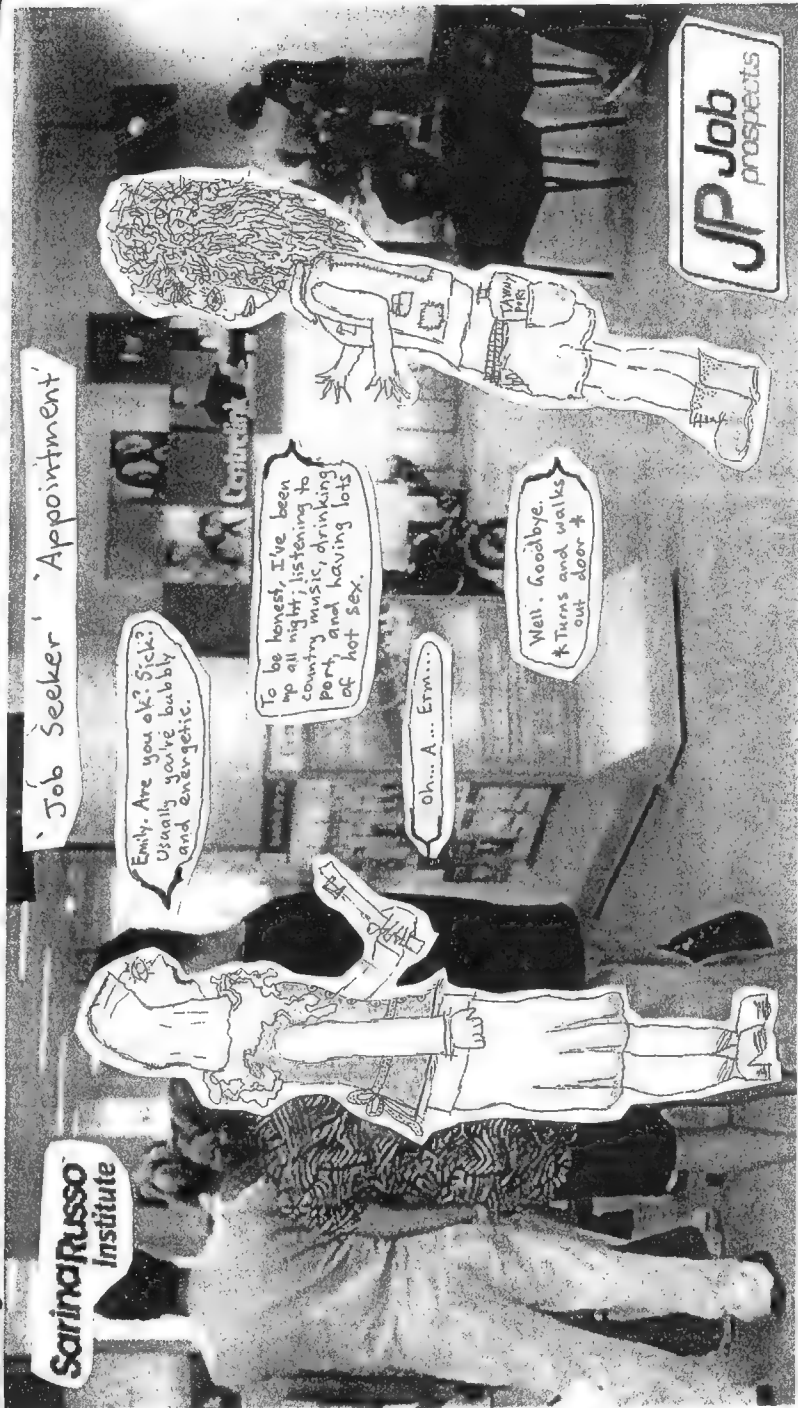 'Job Seeker' 'Appointment'
Sarina Russo
Institute
Emily. Are you ok? Sick?
Usually you're bubbly
and energetic.
To be honest, I've been
up all night; listening to
country music, drinking
port, and having lots
of hot sex.
Oh... A... Erm...
Well. Goodbye.
*Turns and walks
out door *
TAWNY
PORT
JP Job
prospects